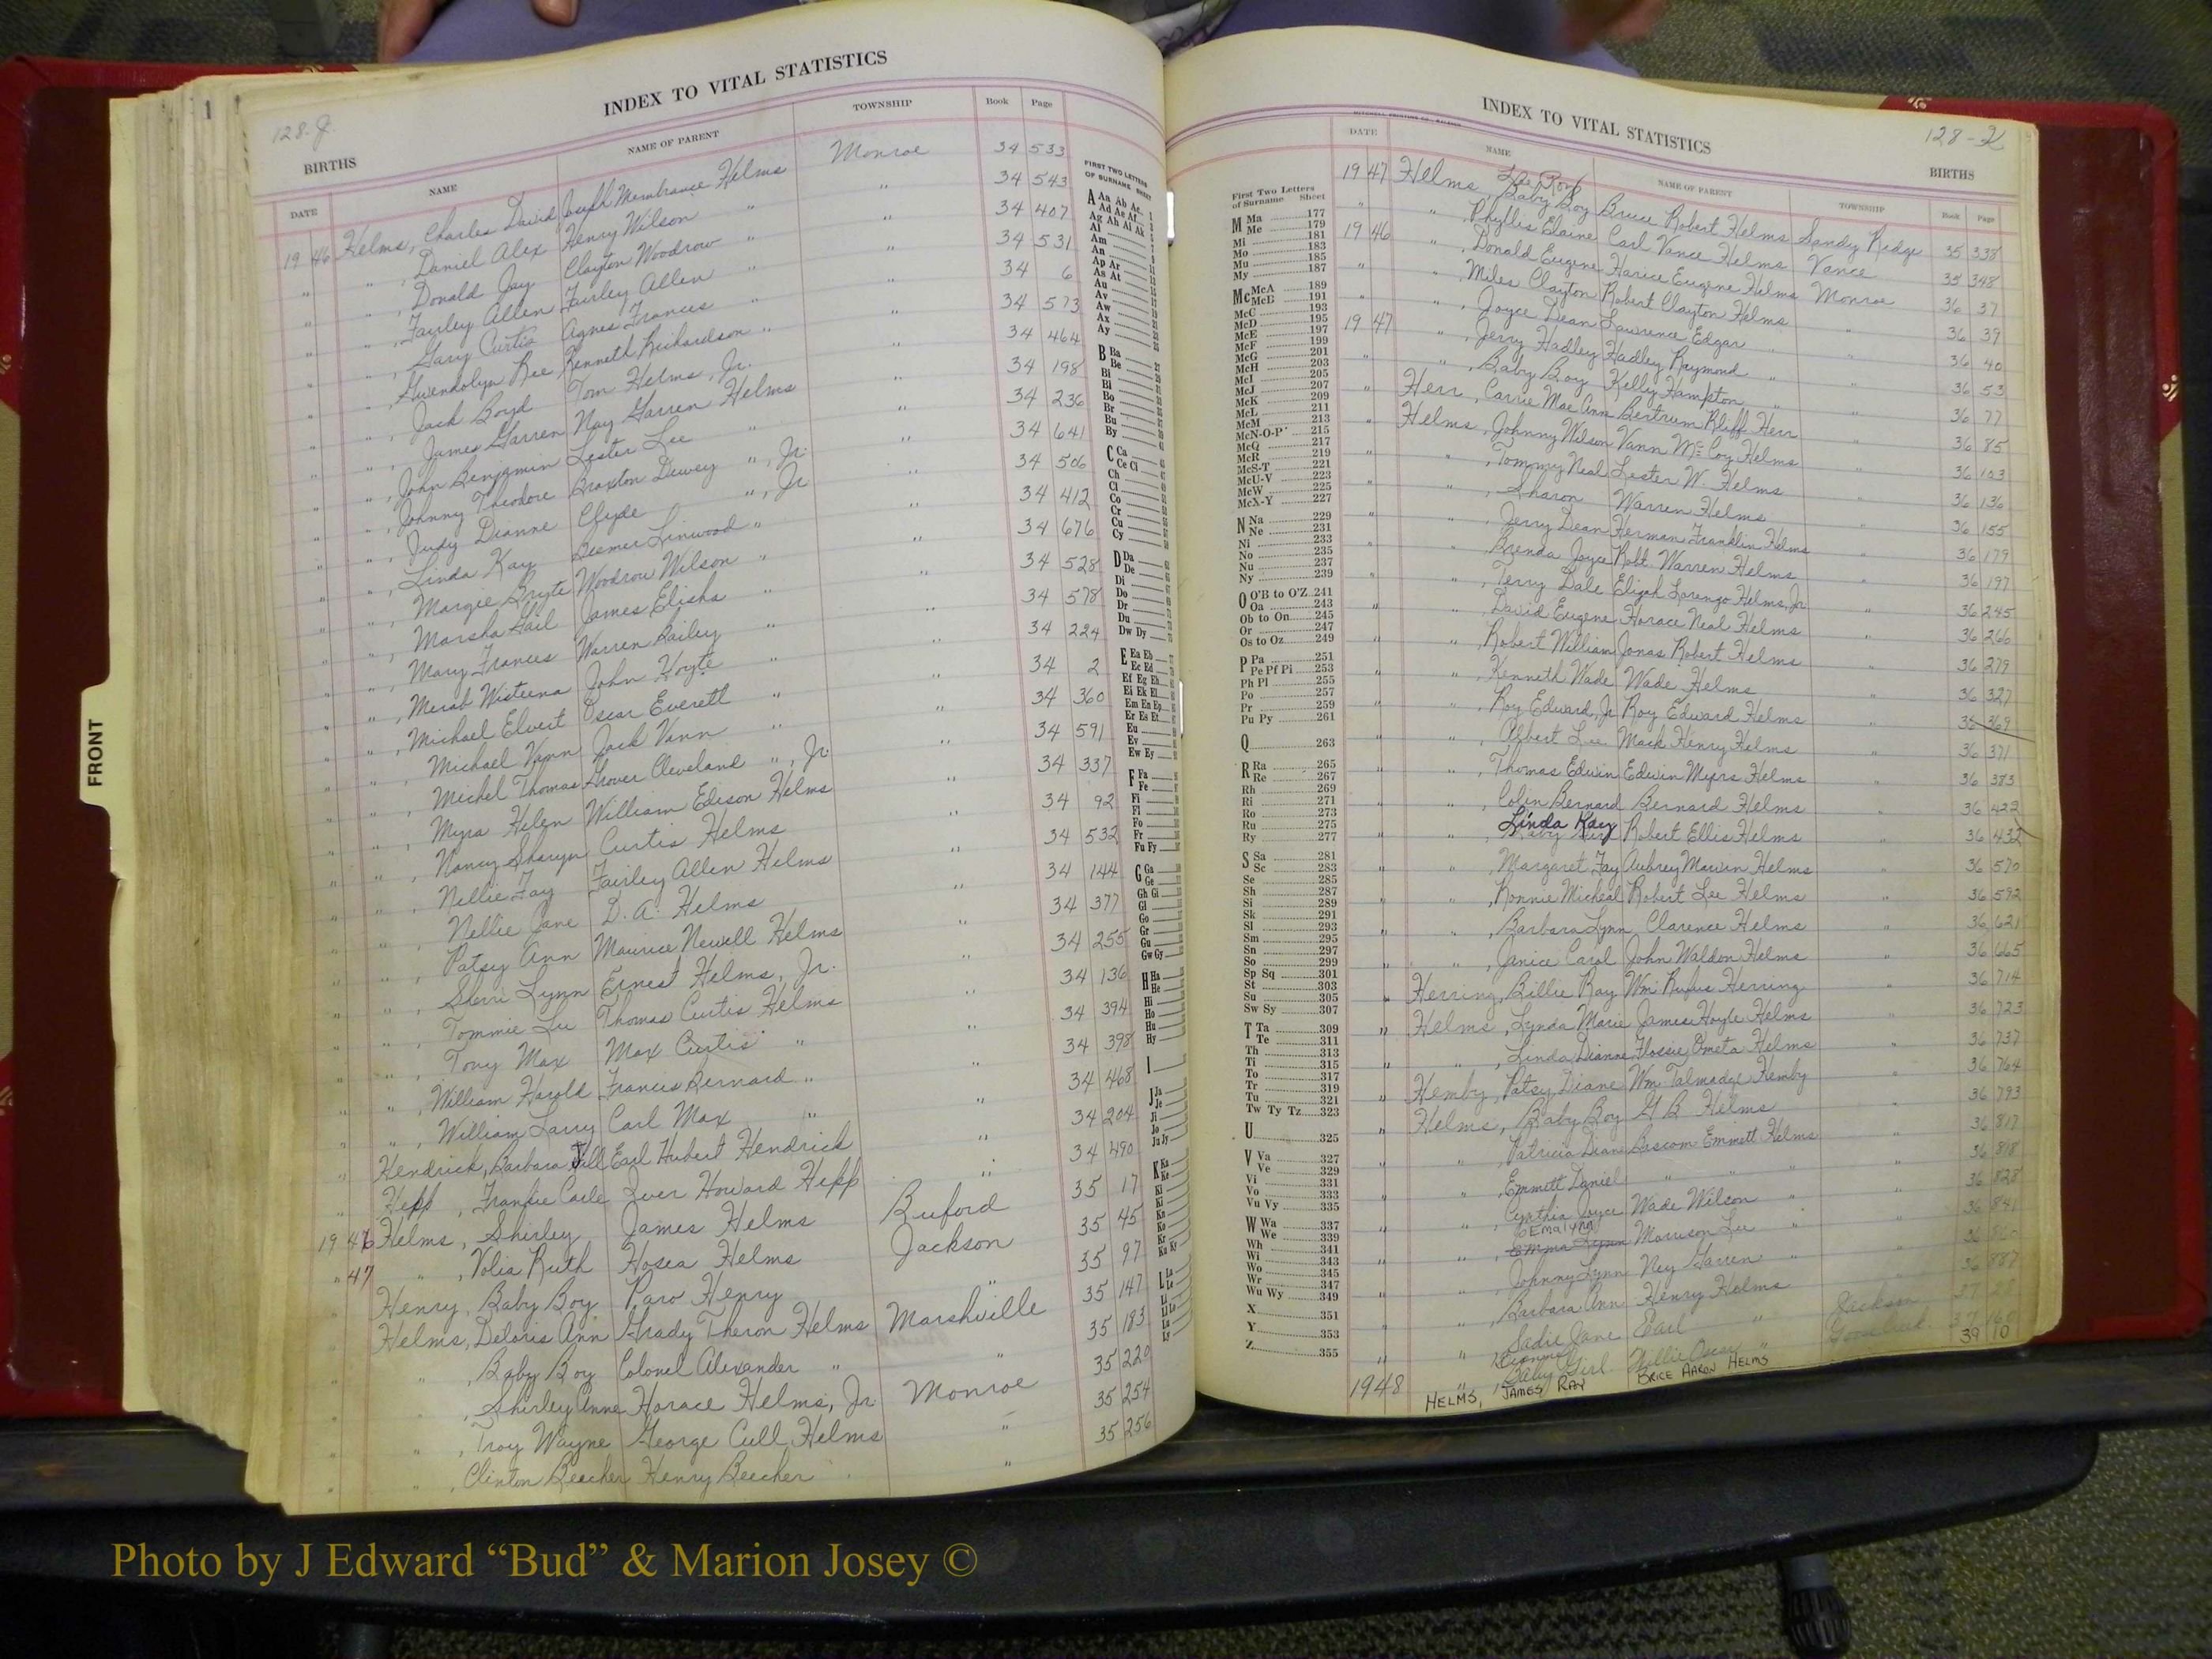 128-J.
INDEX TO VITAL STATISTICS
BIRTHS
DATE NAME NAME OF PARENT TOWNSHIP Book Page
1946 Helms, Charles David Joseph Membrance Helms Monroe 34 533
" " , Daniel Alex Henry Wilson " " 34 543
" " , Donald Jay Clayton Woodrow " " 34 407
" " , Fairley Allen Fairley Allen " " 34 531
" " , Gary Curtis Agnes Frances " " 34 6
" " , Gwendolyn Ree Kenneth Richardson " " 34 573
" " , Jack Boyd Tom Helms, Jr. " 34 464
" " , James Garren Nay Garren Helms " 34 198
" " , John Benjamin Lester Lee " " 34 236
" " , Johnny Theodore Braxton Dewey ", Jr. " 34 641
" " , Judy Dianne Clyde ", Jr " 34 506
" " , Linda Kay Deemer Linwood " " 34 412
" " , Margie Bryte Woodrow Wilson " " 34 676
" " , Marsha Gail James Elisha " " 34 528
" " , Mary Frances Warren Bailey " " 34 578
" " , Merab Wisteena John Hoyte " " 34 224
" " , Michael Elvert Oscar Everett " " 34 2
" " , Michael Vann Jack Vann " " 34 360
" " , Michel Thomas Grover Cleveland ", Jr " 34 591
" " , Myra Helen William Edison Helms " 34 337
" " , Nancy Sharyn Curtis Helms " 34 92
" " , Nellie Fay Fairley Allen Helms " 34 532
" " , Nellie Jane D. A. Helms " 34 144
" " , Patsy Ann Maurice Newell Helms " 34 377
" " , Sherri Lynn Ernest Helms, Jr. " 34 255
" " , Tommie Lee Thomas Curtis Helms " 34 136
" " , Tony Max Max Curtis " " 34 394
" " , William Harold Francis Bernard " " 34 398
" " , William Larry Carl Max " " 34 468
" Hendrick, Barbara Jill Earl Hubert Hendrick " 34 204
" Hepp, Frankie Carle Iver Howard Hepp " 34 490
1946 Helms, Shirley James Helms Buford 35 17
" 47 " , Volia Ruth Hosea Helms Jackson 35 45
" Henry, Baby Boy Paro Henry " 35 97
" Helms, Deloris Ann Grady Theron Helms Marshville 35 147
" " Baby Boy Colonel Alexander " " 35 183
" , Shirley Anne Horace Helms, Jr. Monroe 35 220
" " , Troy Wayne George Cull Helms " 35 254
" " , Clinton Beecher Henry Beecher " 35 256
FIRST TWO LETTERS
OF SURNAME SHEET
A Aa Ab Ac
Ad Ae Af
Ag Ah Ai Ak
Al
Am
An
Ap Ar
As At
Au
Av
Aw
Ax
Ay
B Ba
Be
Bi
Bl
Bo
Br
Bu
By
C Ca
Ce Ci
Ch
Cl
Co
Cr
Cu
Cy
D Da
De
Di
Do
Dr
Du
Dw Dy
E Ea Eb
Ec Ed
Ef Eg Eh
Ei Ek El
Em En Ep
Er Es Et
Eu
Ev
Ew Ey
F Fa
Fe
Fi
Fl
Fo
Fr
Fu Fy
G Ga
Ge
Gh Gi
Gl
Go
Gr
Gu
Gw Gy
H Ha
He
Hi
Ho
Hu
Hy
I
J Ja
Je
Ji
Jo
Ju Jy
K Ka
Ke
Ki
Kl
Kn
Ko
Kr
Ku Ky
L La
Le
Li
FRONT
128-K
INDEX TO VITAL STATISTICS
BIRTHS
DATE NAME NAME OF PARENT TOWNSHIP Book Page
First Two Letters
of Surname Sheet
M Ma 177
Me 179
Mi 181
Mo 183
Mu 185
My 187
Mc McA 189
McB 191
McC 193
McD 195
McE 197
McF 199
McG 201
McH 203
McI 205
McJ 207
McK 209
McL 211
McM 213
McN-O-P 215
McQ 217
McR 219
McS-T 221
McU-V 223
McW 225
McX-Y 227
N Na 229
Ne 231
Ni 233
No 235
Nu 237
Ny 239
O O'B to O'Z 241
Oa 243
Ob to On 245
Or 247
Os to Oz 249
P Pa 251
Pe Pf Pi 253
Ph Pl 255
Po 257
Pr 259
Pu Py 261
Q 263
R Ra 265
Re 267
Rh 269
Ri 271
Ro 273
Ru 275
Ry 277
S Sa 281
Sc 283
Se 285
Sh 287
Si 289
Sk 291
Sl 293
Sm 295
Sn 297
So 299
Sp Sq 301
St 303
Su 305
Sw Sy 307
T Ta 309
Te 311
Th 313
Ti 315
To 317
Tr 319
Tu 321
Tw Ty Tz 323
U 325
V Va 327
Ve 329
Vi 331
Vo 333
Vu Vy 335
W Wa 337
We 339
Wh 341
Wi 343
Wo 345
Wr 347
Wu Wy 349
X 351
Y 353
Z 355
1947 Helms, Baby Boy Bruce Robert Helms Sandy Ridge 35 338
" " , Phyllis Elaine Carl Vance Helms Vance 35 348
1946 " , Donald Eugene Harice Eugene Helms Monroe 36 37
" " , Miles Clayton Robert Clayton Helms " 36 39
" " , Joyce Dean Lawrence Edgar " " 36 40
1947 " , Jerry Hadley Hadley Raymond " " 36 53
" " , Baby Boy Kelly Hampton " " 36 77
" Herr, Carrie Mae Ann Bertrum Kliff Herr " 36 85
" Helms, Johnny Wilson Vann McCoy Helms " 36 103
" " , Tommy Neal Lester W. Helms " 36 136
" " , Sharon Warren Helms " 36 155
" " , Jerry Dean Herman Franklin Helms " 36 179
" " , Brenda Joyce Robt. Warren Helms " 36 197
" " , Terry Dale Elijah Lorenzo Helms, Jr " 36 245
" " , David Eugene Horace Neal Helms " 36 266
" " , Robert William Jonas Robert Helms " 36 279
" " , Kenneth Wade Wade Helms " 36 327
" " , Roy Edward, Jr Roy Edward Helms " 36 369
" " , Albert Lee Mack Henry Helms " 36 371
" " , Thomas Edwin Edwin Myers Helms " 36 383
" " , Colin Bernard Bernard Helms " 36 422
" " , Linda Kay Robert Ellis Helms " 36 432
" " , Margaret Fay Aubrey Marvin Helms " 36 570
" " , Ronnie Micheal Robert Lee Helms " 36 592
" " , Barbara Lynn Clarence Helms " 36 621
" " , Janice Carol John Waldon Helms " 36 665
" Herring, Billie Ray Wm. Rufus Herring " 36 714
" Helms, Lynda Marie James Hoyle Helms " 36 723
" " , Linda Dianne Flossie Ometa Helms " 36 737
" Hemby, Patsy Diane Wm. Talmadge Hemby " 36 764
" Helms, Baby Boy G B Helms " 36 793
" " , Patricia Diane Bascom Emmett Helms " 36 817
" " , Emmett Daniel " " " 36 818
" " , Cynthia Joyce Wade Wilson " " 36 828
" " , EMalynn Morrison Lee " " 36 841
" " , Johnny Lynn Ney Garren " "
" " , Barbara Ann Henry Helms " 36 887
" " , Sadie Jane Earl " Jackson
" " , Baby Girl Willie Oscar " Goose Creek
1948 HELMS, JAMES RAY BRICE AARON HELMS 39 10
Photo by J Edward “Bud” & Marion Josey ©